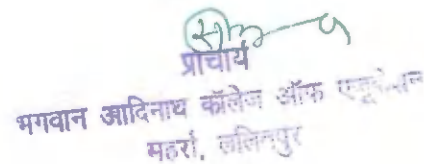 प्राचार्य
भगवान आदिनाथ कॉलेज ऑफ एजूकेशन
महर्रा, ललितपुर